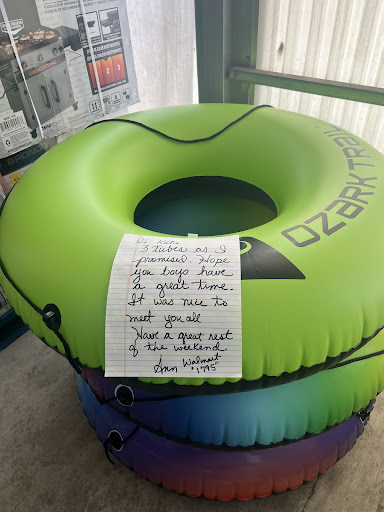 OZARK TRAIL
3 tubes as I
promised. Hope
you boys have
a great time.
It was nice to
meet you all
Have a great rest
of the weekend.
Ann Walmart
"1795"
11
2
2